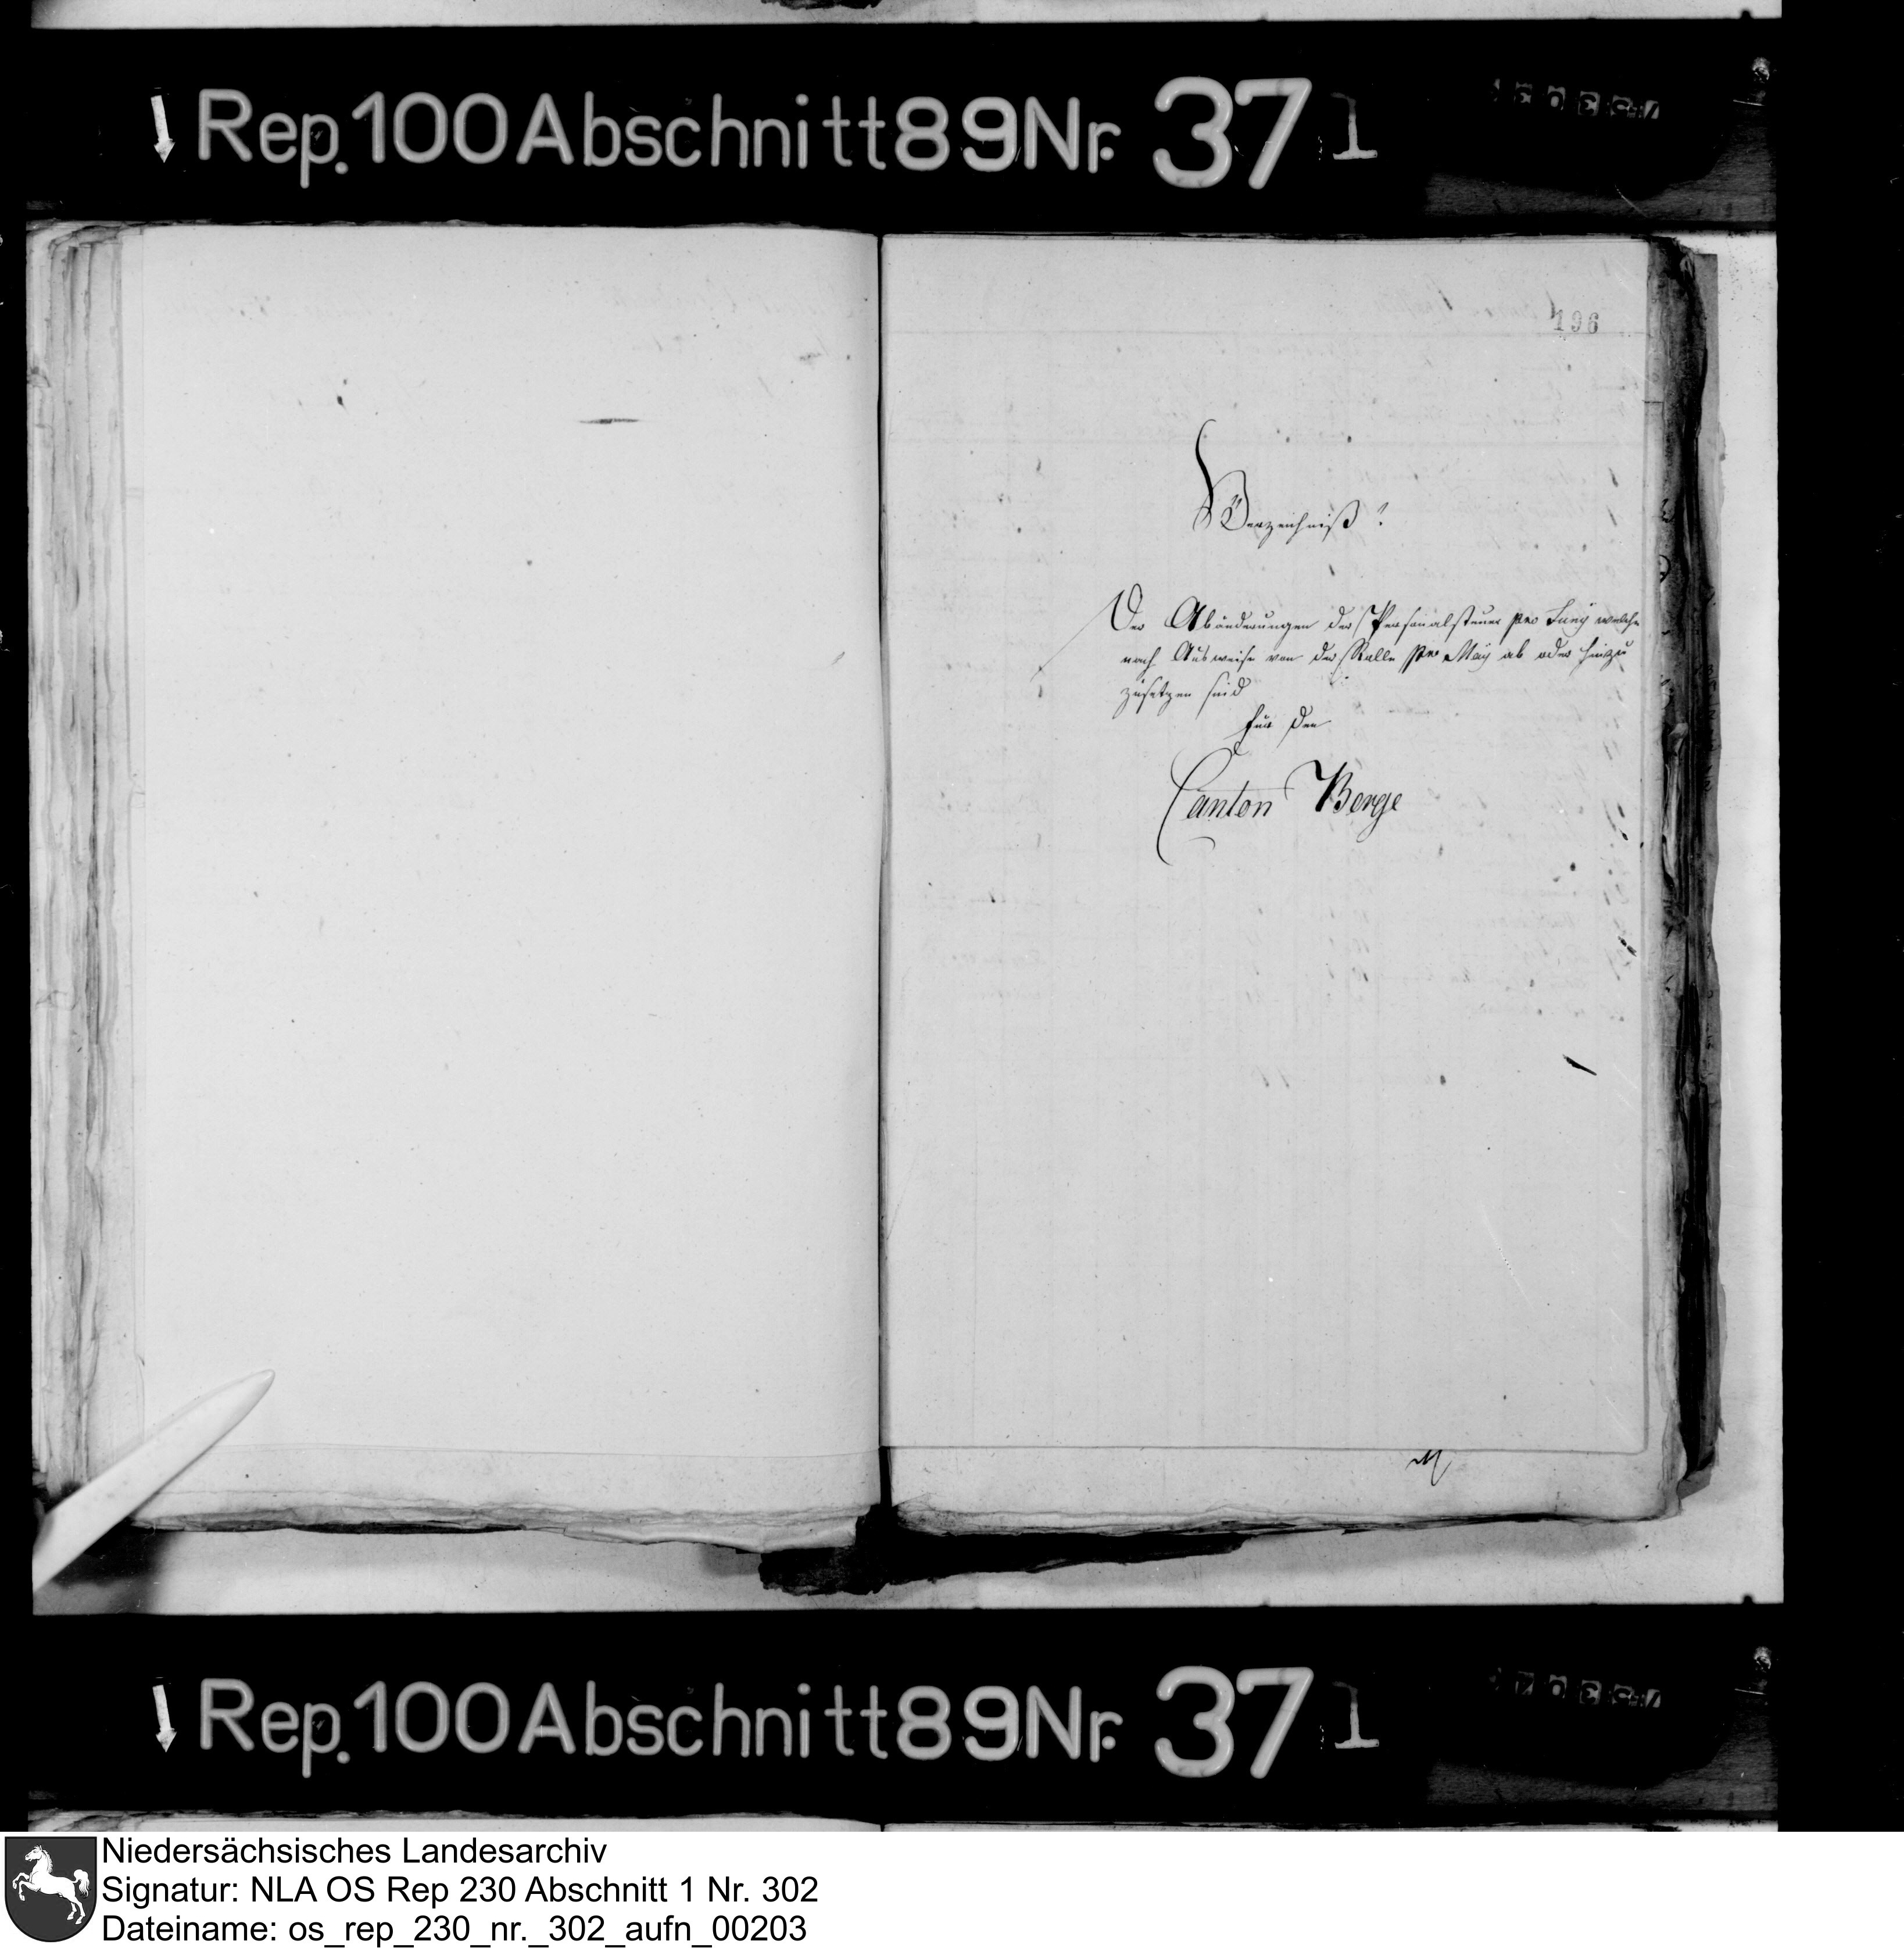 Rep. 100 Abschnitt 89 Nr. 37 1
196
Verzeichniß
Der Abänderungen der Personalsteuer pro Juny welche
nach Ausweise von der Rolle pro May ab oder hinzu
zusetzen sind
für den
Canton Berge
Rep. 100 Abschnitt 89 Nr. 37 1
Niedersächsisches Landesarchiv
Signatur: NLA OS Rep 230 Abschnitt 1 Nr. 302
Dateiname: os_rep_230_nr._302_aufn_00203